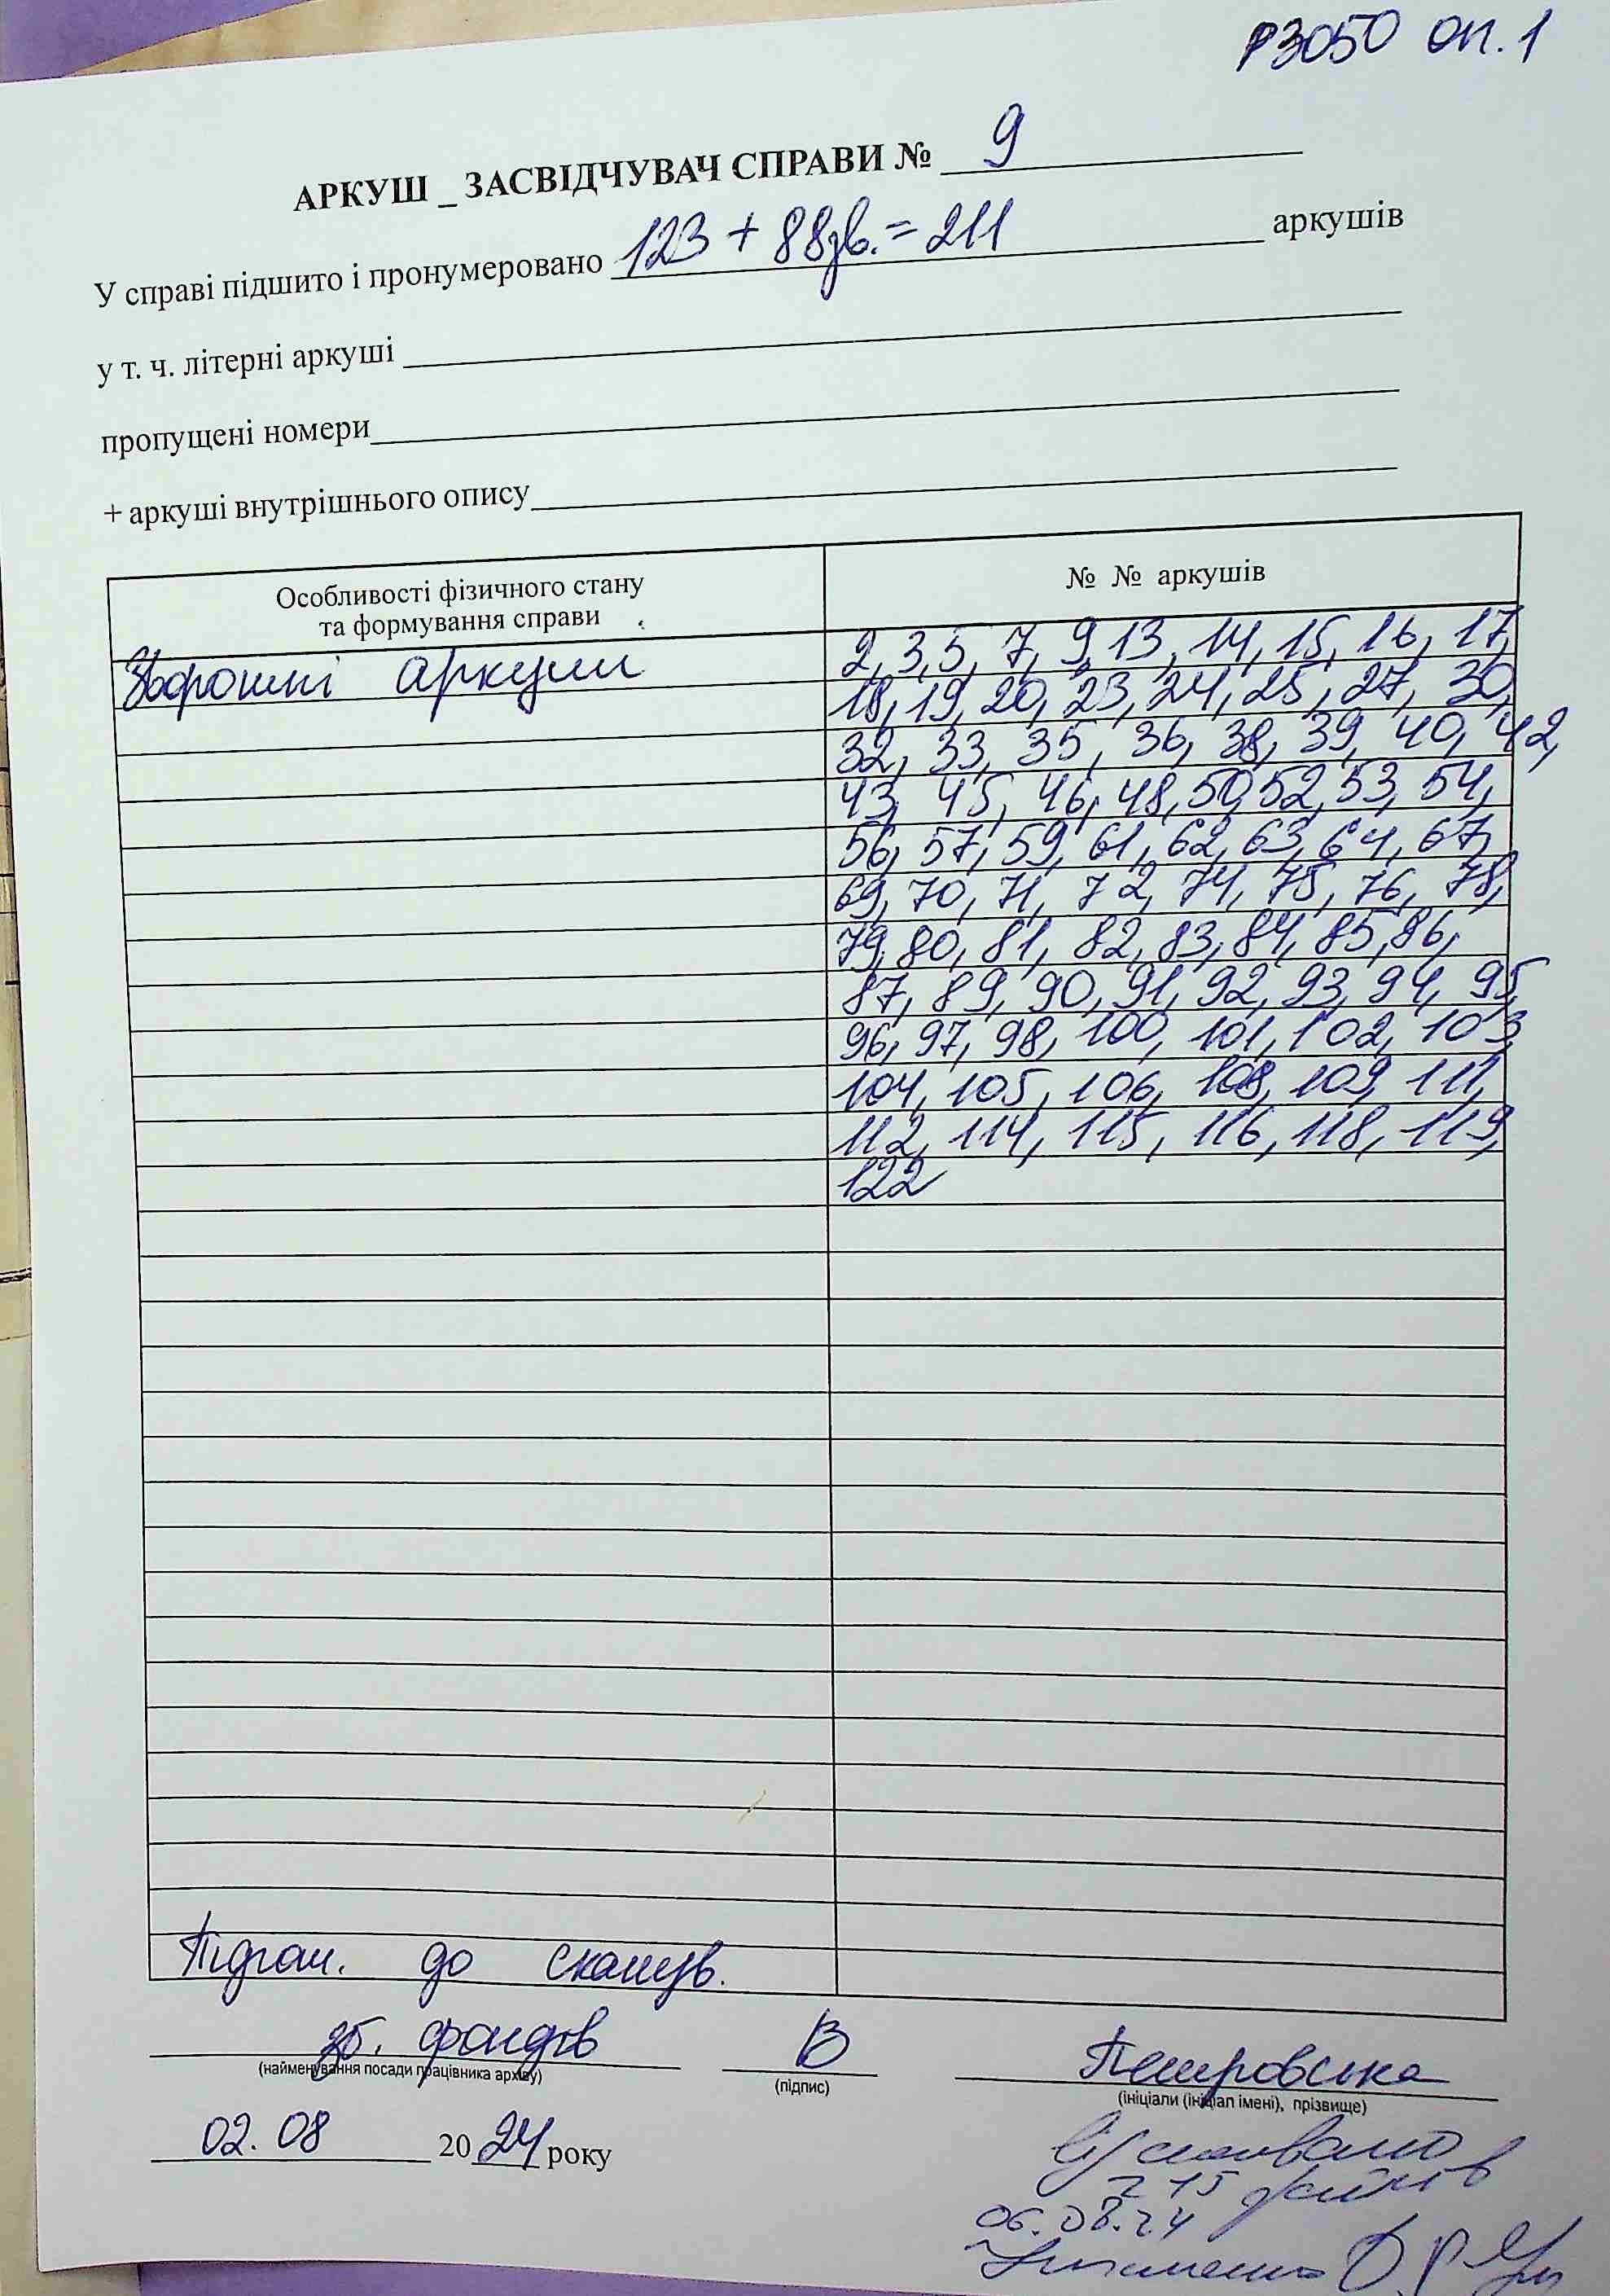 Р3050 оп. 1
АРКУШ _ ЗАСВІДЧУВАЧ СПРАВИ № 9
У справі підшито і пронумеровано 123 + 88зв. = 211 аркушів
у т. ч. літерні аркуші
пропущені номери
+ аркуші внутрішнього опису
Особливості фізичного стану
та формування справи
№ № аркушів
Зворотні аркуши
2, 3, 5, 7, 9, 13, 14, 15, 16, 17,
18, 19, 20, 23, 24, 25, 27, 30,
32, 33, 35, 36, 38, 39, 40, 42,
43, 45, 46, 48, 50, 52, 53, 54,
56, 57, 59, 61, 62, 63, 64, 67,
69, 70, 71, 72, 74, 75, 76, 78,
79, 80, 81, 82, 83, 84, 85, 86,
87, 89, 90, 91, 92, 93, 94, 95,
96, 97, 98, 100, 101, 102, 103,
104, 105, 106, 108, 109, 111,
112, 114, 115, 116, 118, 119,
122
Підгот. до сканув.
зб. фондів В Петровська
(найменування посади працівника архіву) (підпис) (ініціали (ініціал імені), прізвище)
02. 08 2024 року
Відскановано
215 файлів
06.08.24